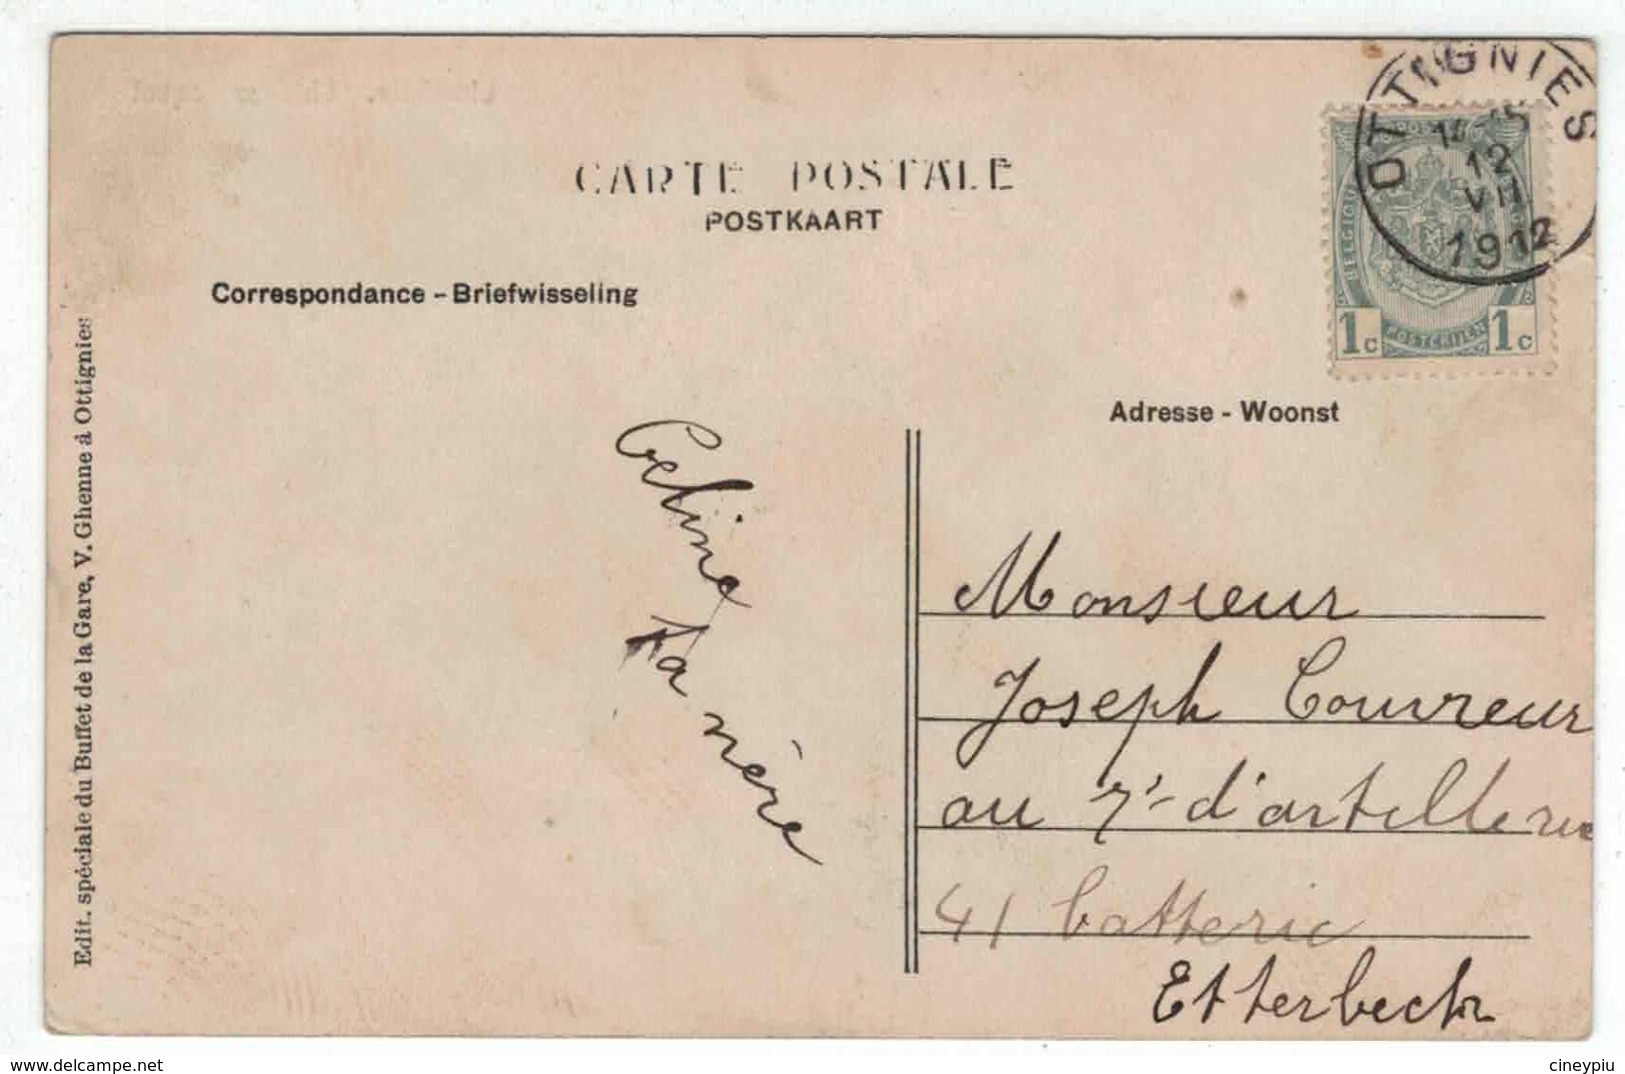 CARTE POSTALE
POSTKAART
Correspondance - Briefwisseling
Edit. spéciale du Buffet de la Gare, V. Ghenne à Ottignies
OTTIGNIES
12
VII
1912
BELGIQUE
1c POSTERIJEN 1c
Adresse - Woonst
Celine
ta mère
Monsieur
Joseph Couvreur
au 7e d'artillerie
41 batterie
Etterbeck
delcampe.net
cineypiu